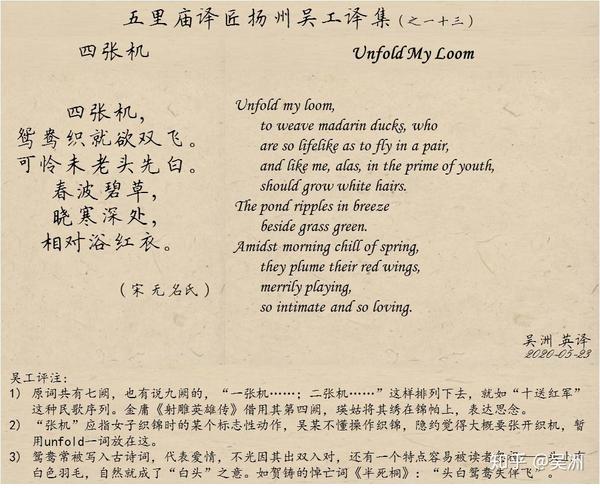 五里庙译匠扬州吴工译集（之一十三）
四张机
Unfold My Loom
四张机，
鸳鸯织就欲双飞。
可怜未老头先白。
春波碧草，
晓寒深处，
相对浴红衣。
（宋 无名氏）
Unfold my loom,
to weave madarin ducks, who
are so lifelike as to fly in a pair,
and like me, alas, in the prime of youth,
should grow white hairs.
The pond ripples in breeze
beside grass green.
Amidst morning chill of spring,
they plume their red wings,
merrily playing,
so intimate and so loving.
吴洲 英译
2020-05-23
吴工评注：
1） 原词共有七阕，也有说九阕的，“一张机……；二张机……”这样排列下去，就如“十送红军”
这种民歌序列。金庸《射雕英雄传》借用其第四阕，瑛姑将其绣在锦帕上，表达思念。
2） “张机”应指女子织锦时的某个标志性动作，吴某不懂操作织锦，隐约觉得大概要张开织机，暂
用unfold一词放在这。
3） 鸳鸯常被写入古诗词，代表爱情，不光因其出双入对，还有一个特点容易被读者
白色羽毛，自然就成了“白头”之意。如贺铸的悼亡词《半死桐》：“头白鸳鸯失伴飞”。
知乎 @吴洲